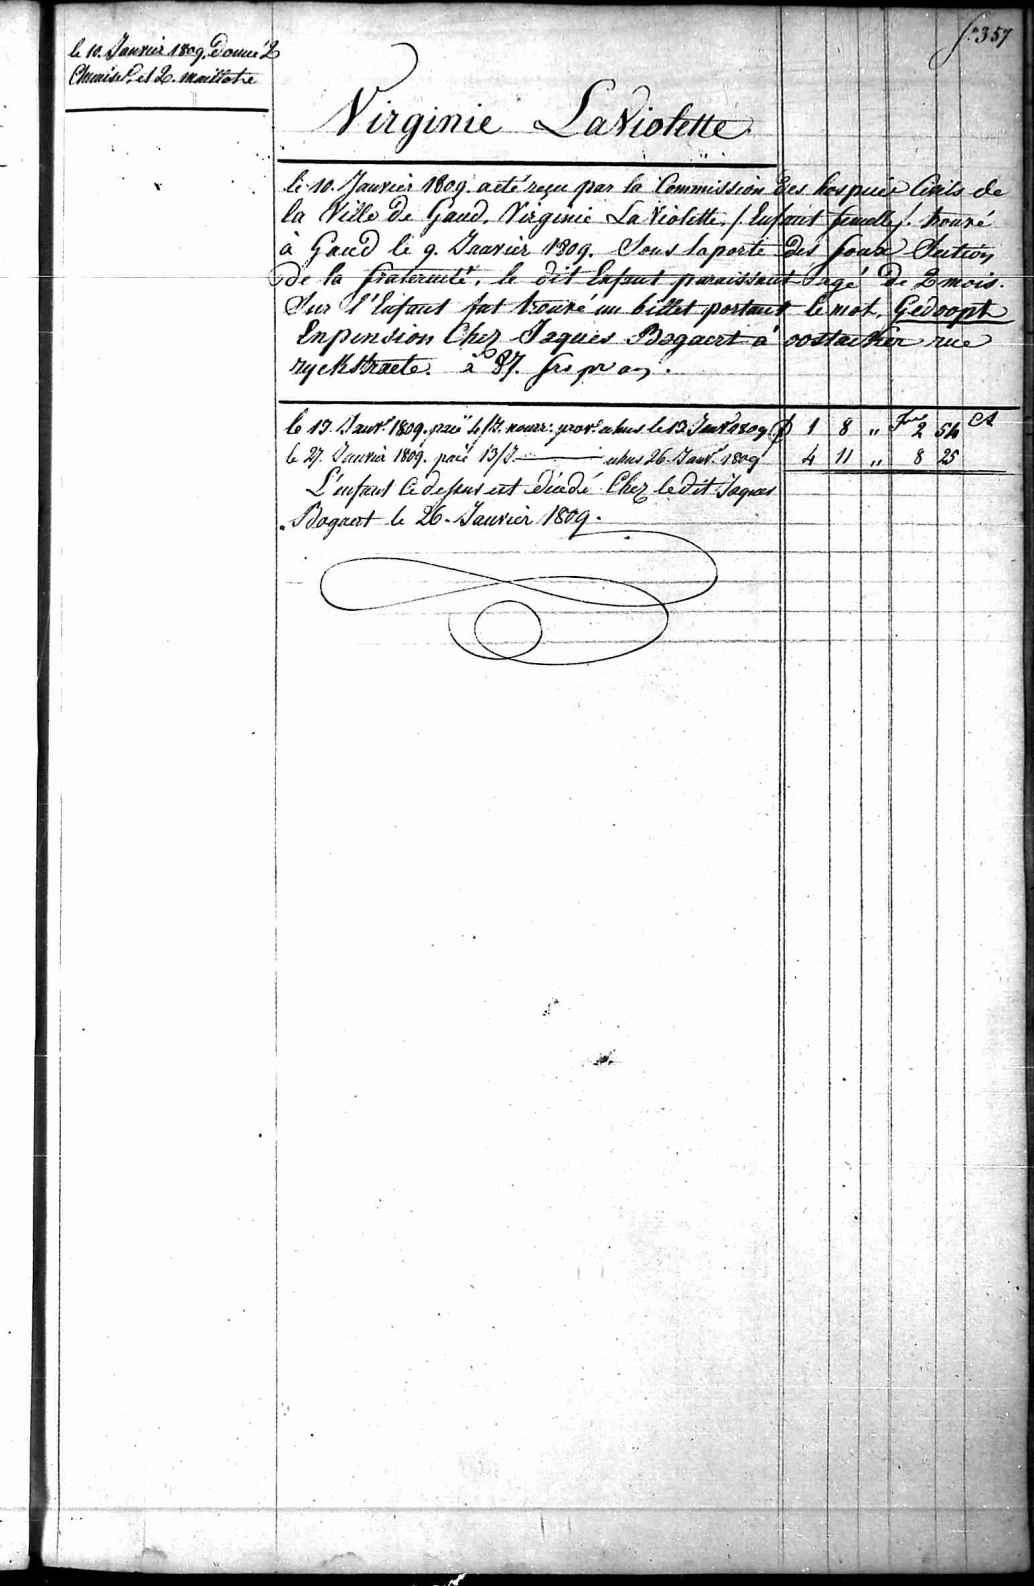 f.° 357
le 10. Janvier 1809. donné 2
Chemises et 2. maillots
Virginie LaViolette
le 10. Janvier 1809. a été reçu par la Commission des hospices Civils de
la Ville de Gand, Virginie La Violette, /: Enfant femelle :/ trouvé
à Gand le 9. Janvier 1809. Sous la porte des foux Section
de la fraternité, le dit Enfant paraissant agé de 2 mois.
Sur l'Enfant fut trouvé un billet portant le mot, Gedoopt
En pension Chez Jaques Bogaert à oostacker rue
ryckstraete. à 87. frs pr an.
le 13. Janvr. 1809. paié 4/S. nourr: prov. echus le 13 Janvr 1809 1 8 " Frs 2 54 Ct
le 27. Janvier 1809. paié 13/S. echus 26. Janvr. 1809 4 11 " 8 25
L'enfant Ci dessus est décédé Chez le dit Jaques
Bogaert le 26. Janvier 1809.